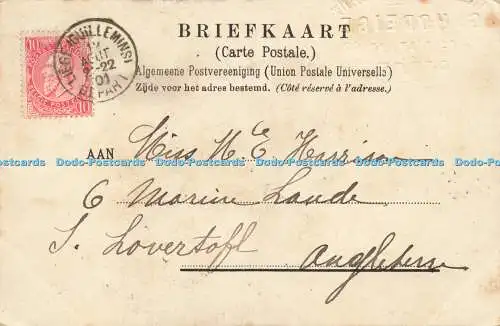 BRIEFKAART
(Carte Postale.)
Algemeene Postvereeniging (Union Postale Universelle)
Zijde voor het adres bestemd. (Côté réservé à l'adresse.)
LIEGE (GUILLEMINS)
AOUT
22
01
DEPART
10
10
AAN Miss M E Harrison
Dodo-Postcards Dodo-Postcards Dodo-Postcards Dodo-Postcards Dodo-Postcards
6 Marine
S. Lovertoft
Angleterre